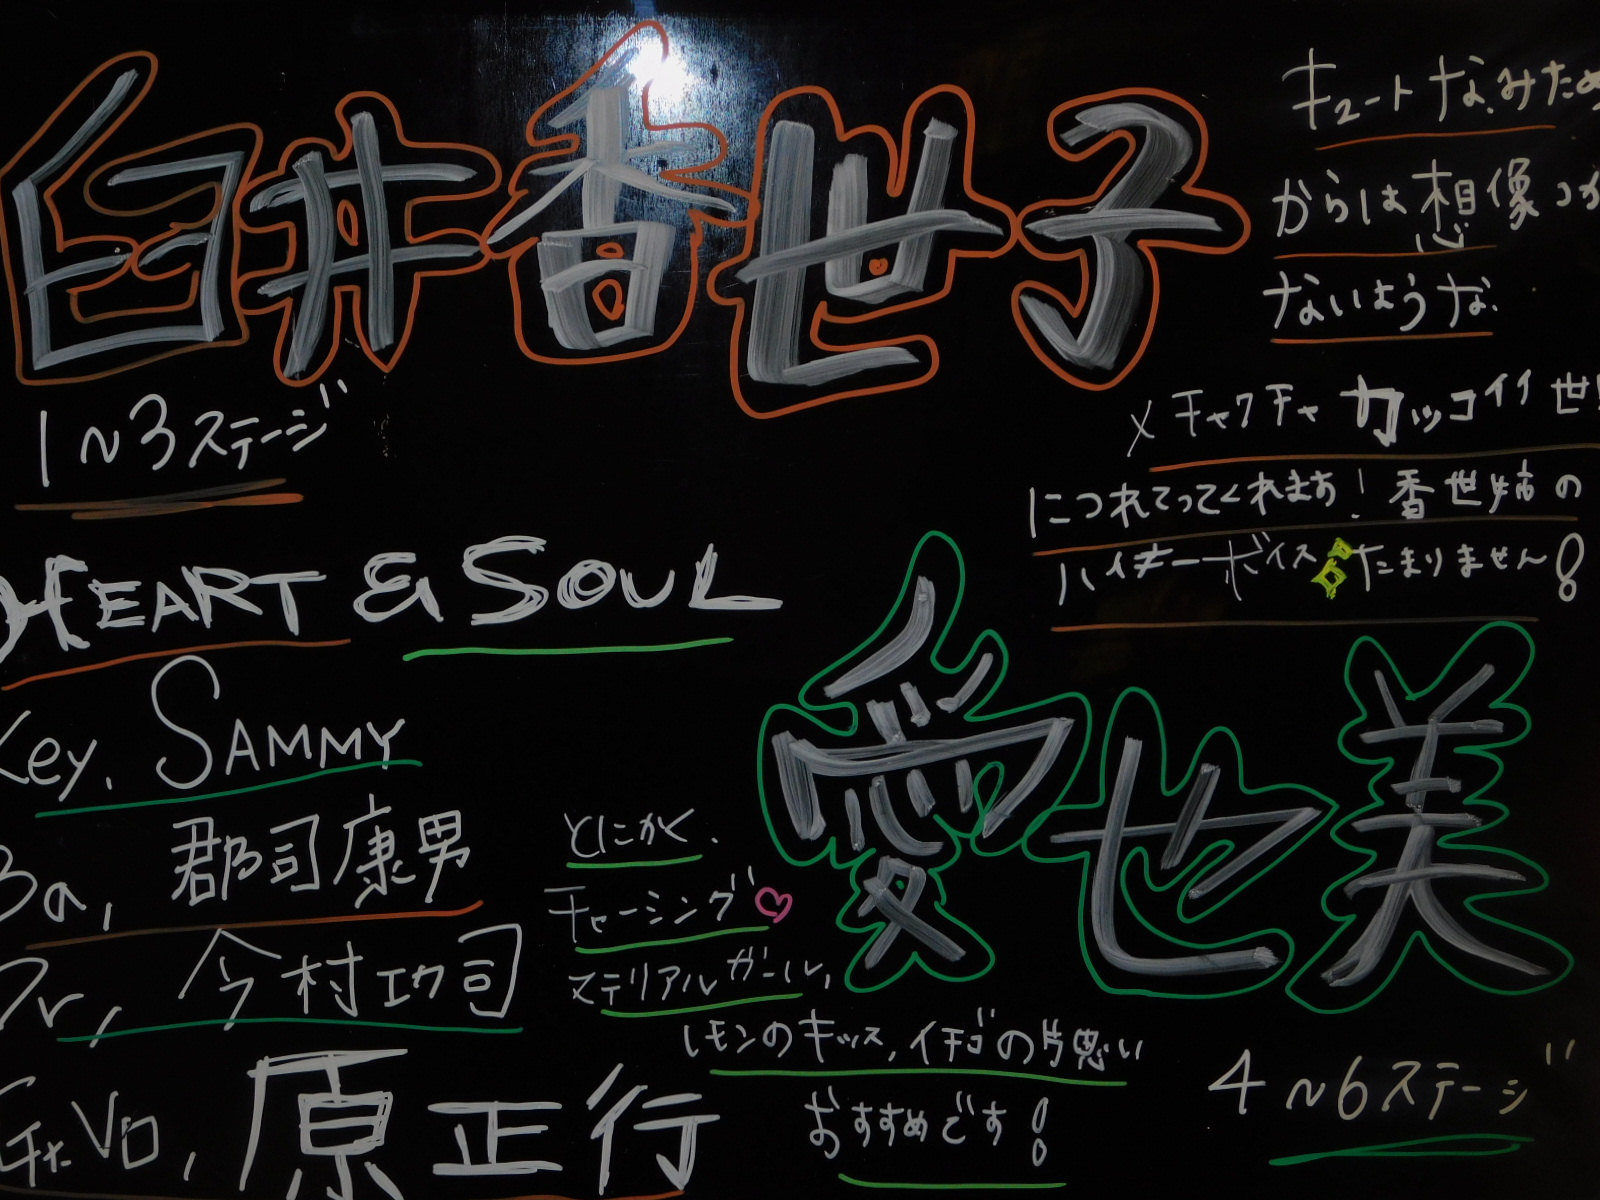 臼井香世子
1~3ステージ
キュートなみため
からは想像つか
ないような
メチャクチャカッコイイ世
につれてってくれます!香世姉の
ハイキーボイスたまりません!
HEART & SOUL
Key. SAMMY
Ba, 郡司康男
Dr, 今村功司
Gt. Vo, 原正行
愛世美
とにかく、
チャーミング♡
マテリアルガール,
レモンのキッス,イチゴの片思い
おすすめです!
4~6ステージ